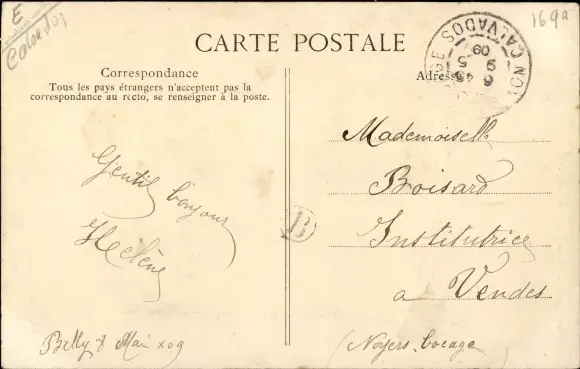 E
Calvados
169a
CARTE POSTALE
Correspondance
Tous les pays étrangers n'acceptent pas la
correspondance au recto, se renseigner à la poste.
Gentil bonjour
Hélène
Billy 8 Mai X09
Adresse
CALVADOS
9 - 5
09
Mademoiselle
Boisard
Institutrice
a Vendes
(Noyers bocage)